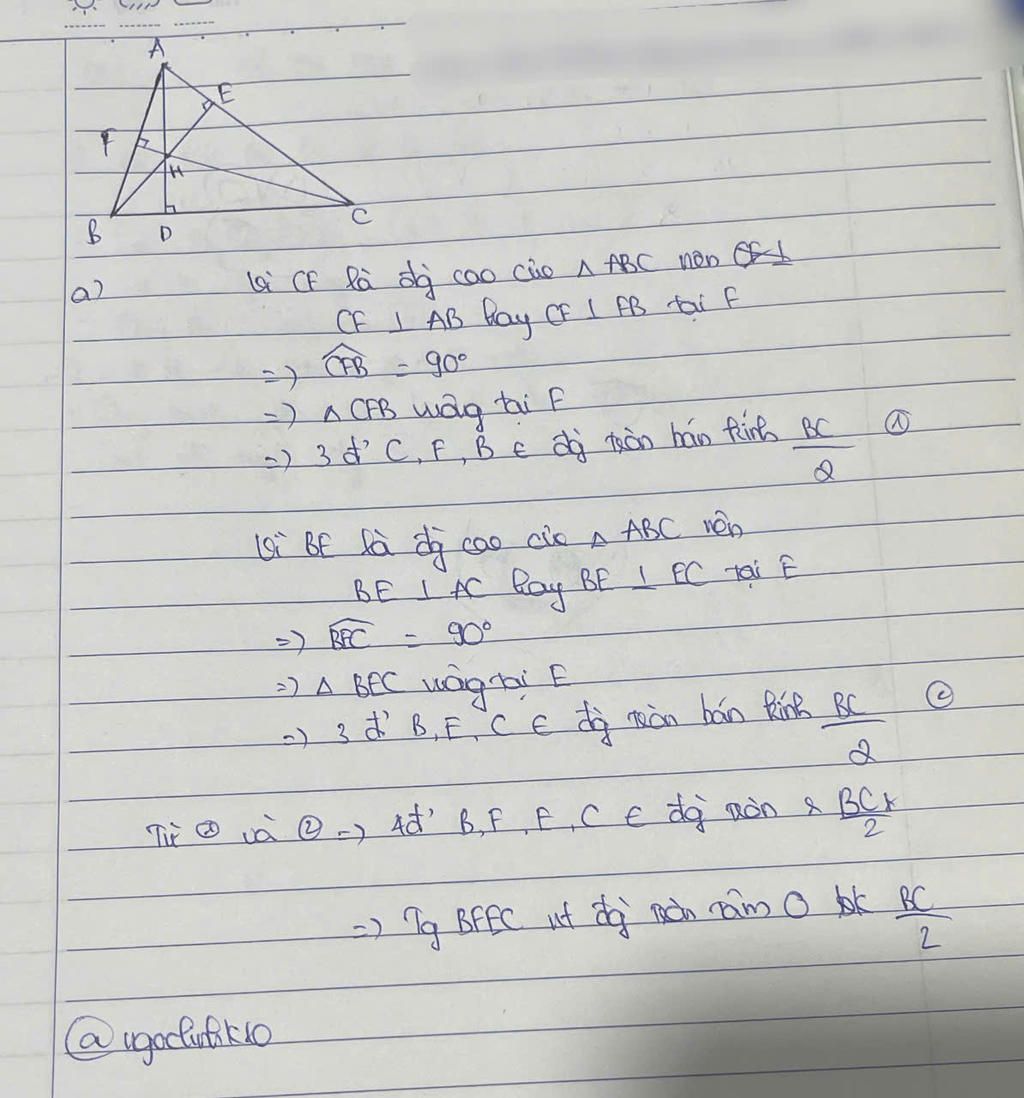 A
E
F
H
B
D
C
a) Vì CF là đg cao của Δ ABC nên CF ⊥
CF ⊥ AB hay CF ⊥ FB tại F
=> CFB = 90°
=> Δ CFB vuông tại F
=> 3 đ' C, F, B ∈ đg tròn bán kính BC/2 ①
Vì BE là đg cao của Δ ABC nên
BE ⊥ AC hay BE ⊥ EC tại E
=> BEC = 90°
=> Δ BEC vuông tại E
=> 3 đ' B, E, C ∈ đg tròn bán kính BC/2 ②
Từ ① và ② => 4đ' B, F, E, C ∈ đg tròn BC/2
=> Tg BFEC nt đg tròn tâm O bk BC/2